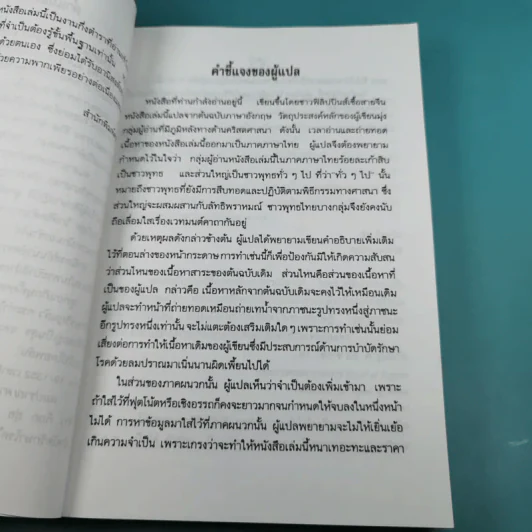 หนังสือเล่มนี้เป็นงานกึ่งตำราที่อ่าน
ที่จำเป็นต้องรู้ขั้นพื้นฐานเท่านั้น
ด้วยตนเอง ซึ่งย่อมได้รับ
ด้วยความพากเพียรอย่างต่อเนื่อง
คำชี้แจงของผู้แปล
หนังสือที่ท่านกำลังอ่านอยู่นี้ เขียนขึ้นโดยชาวฟิลิปปินส์เชื้อสายจีน
หนังสือเล่มนี้แปลจากต้นฉบับภาษาอังกฤษ วัตถุประสงค์หลักของผู้เขียนมุ่ง
กลุ่มผู้อ่านที่มีภูมิหลังทางด้านคริสตศาสนา ดังนั้น เวลาอ่านและถ่ายทอด
เนื้อหาของหนังสือเล่มนี้ออกมาเป็นภาคภาษาไทย ผู้แปลจึงต้องพยายาม
กำหนดไว้ในใจว่า กลุ่มผู้อ่านหนังสือเล่มนี้ในภาคภาษาไทยร้อยละเก้าสิบ
เป็นชาวพุทธ และส่วนใหญ่เป็นชาวพุทธทั่ว ๆ ไป ที่ว่า"ทั่ว ๆ ไป" นั้น
หมายถึงชาวพุทธที่ยังมีการสืบทอดและปฏิบัติตามพิธีกรรมทางศาสนา ซึ่ง
ส่วนใหญ่จะผสมผสานกับลัทธิพราหมณ์ ชาวพุทธไทยบางกลุ่มจึงยังคงนับ
ถือเลื่อมใสเรื่องเวทมนต์คาถากันอยู่
ด้วยเหตุผลดังกล่าวข้างต้น ผู้แปลได้พยายามเขียนคำอธิบายเพิ่มเติม
ไว้ที่ตอนล่างของหน้ากระดาษ การทำเช่นนี้ก็เพื่อป้องกันมิให้เกิดความสับสน
ว่าส่วนไหนของเนื้อหาสาระของต้นฉบับเดิม ส่วนไหนคือส่วนของเนื้อหาที่
เป็นของผู้แปล กล่าวคือ เนื้อหาหลักจากต้นฉบับเดิมจะคงไว้ให้เหมือนเดิม
ผู้แปลจะทำหน้าที่ถ่ายทอดเหมือนถ่ายเทน้ำจากภาชนะรูปทรงหนึ่งสู่ภาชนะ
อีกรูปทรงหนึ่งเท่านั้น จะไม่แตะต้องเสริมเติมใด ๆ เพราะการทำเช่นนั้นย่อม
เสี่ยงต่อการทำให้เนื้อหาเดิมของผู้เขียนซึ่งมีประสบการณ์ด้านการบำบัดรักษา
โรคด้วยลมปราณมาเนิ่นนานผิดเพี้ยนไปได้
ในส่วนของภาคผนวกนั้น ผู้แปลเห็นว่าจำเป็นต้องเพิ่มเข้ามา เพราะ
ถ้าใส่ไว้ที่ฟุตโน้ตหรือเชิงอรรถก็คงจะยาวมากจนกำหนดให้จบลงในหนึ่งหน้า
ไม่ได้ การหาข้อมูลมาใส่ไว้ที่ภาคผนวกนั้น ผู้แปลพยายามจะไม่ให้เยิ่นเย้อ
เกินความจำเป็น เพราะเกรงว่าจะทำให้หนังสือเล่มนี้หนาเทอะทะและราคา